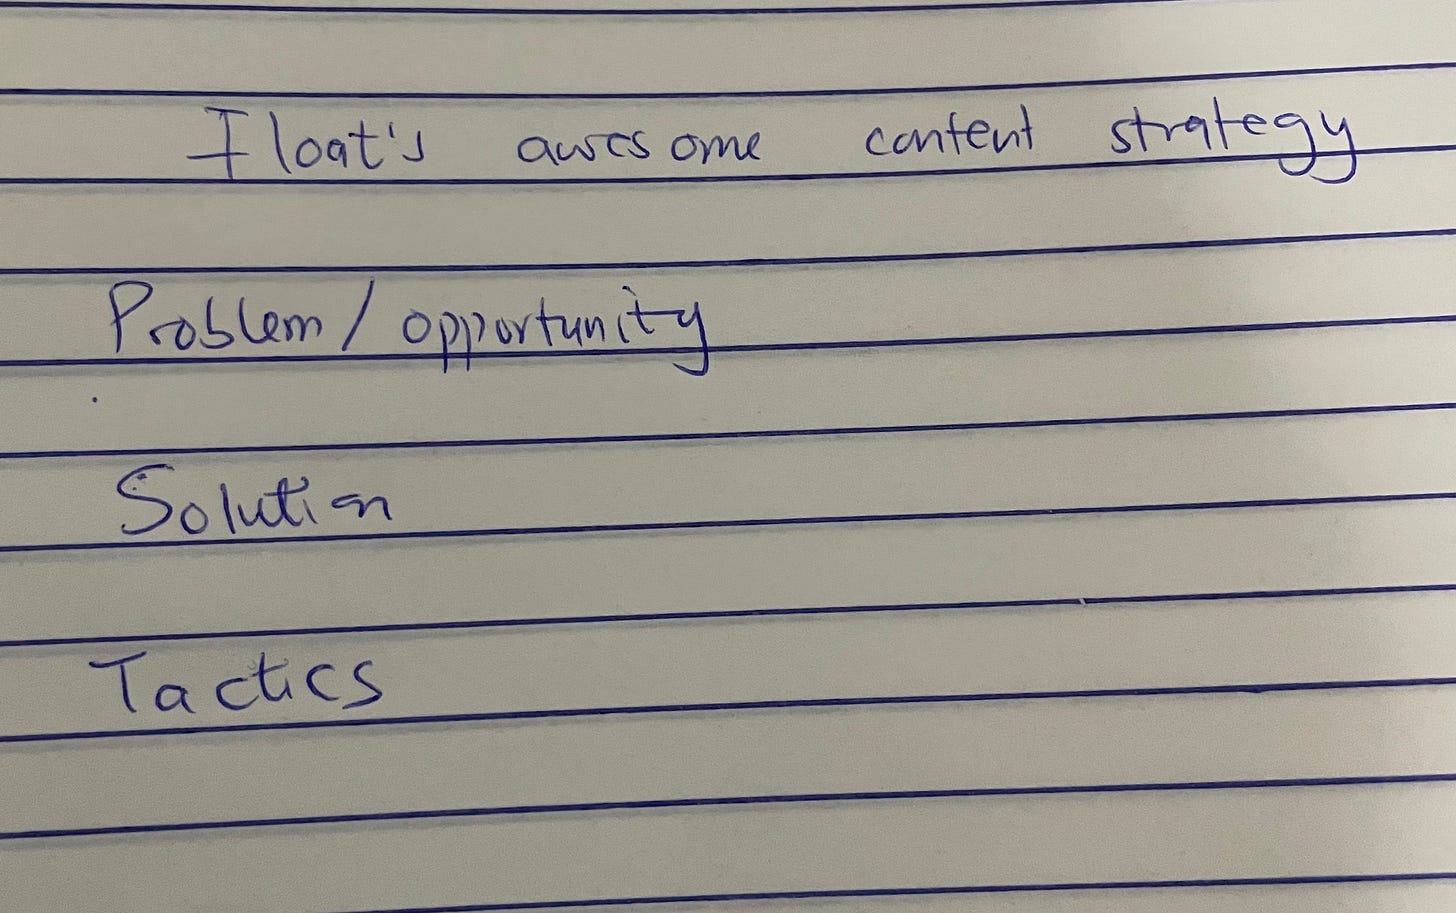 Float's awesome content strategy
Problem/opportunity
Solution
Tactics